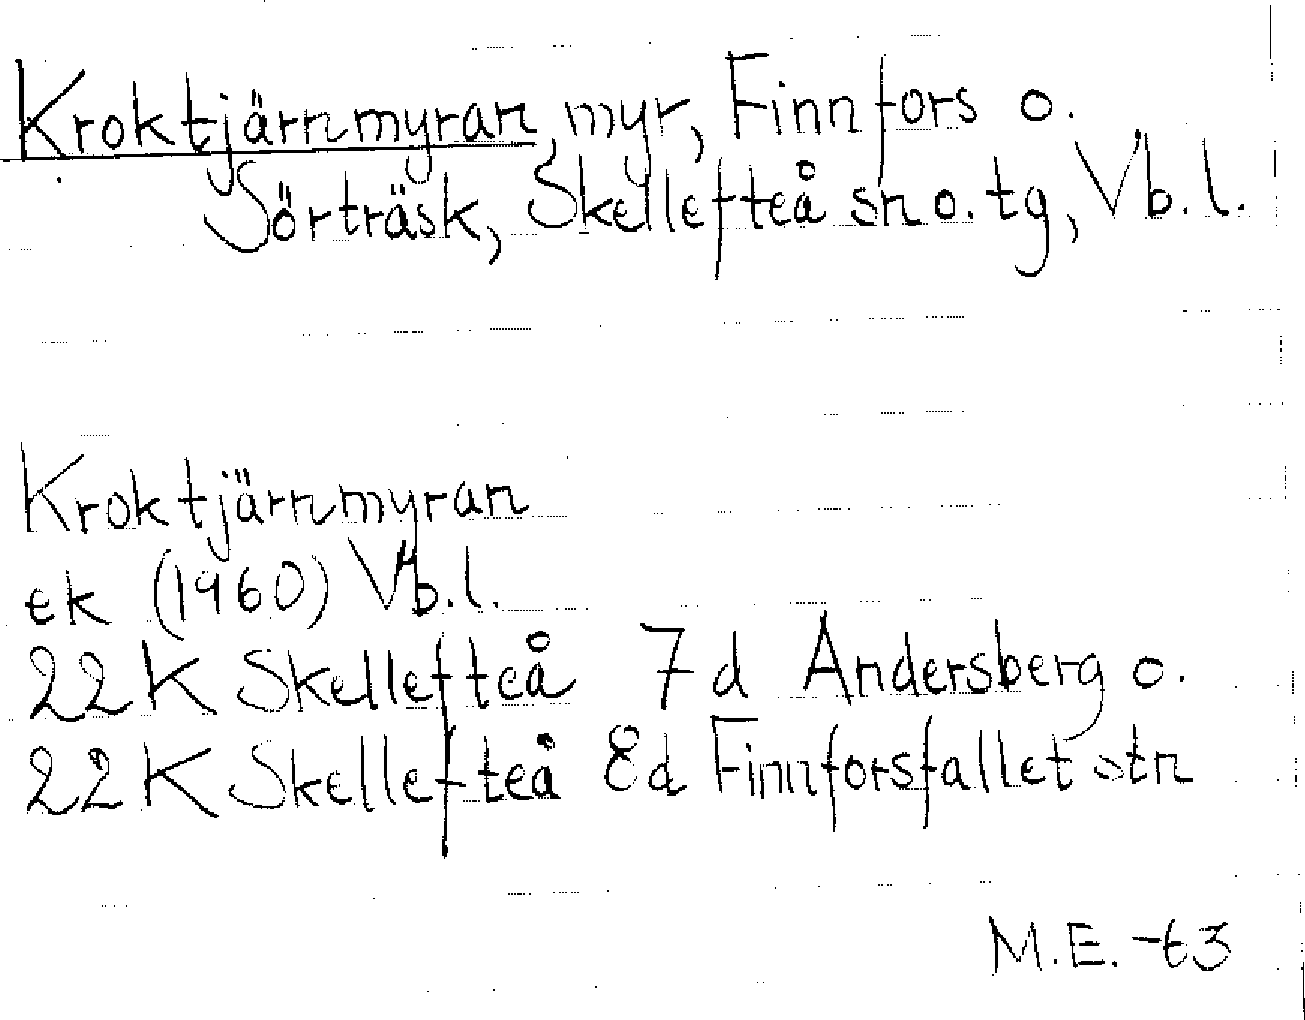 Kroktjärnmyran, myr, Finnfors o.
Sörträsk, Skellefteå sn o. tg, Vb. l.
Kroktjärnmyran
ek (1960) Vb. l.
22K Skellefteå 7d Andersberg o.
22K Skellefteå 8d Finnforsfallet otn
M.E. -63